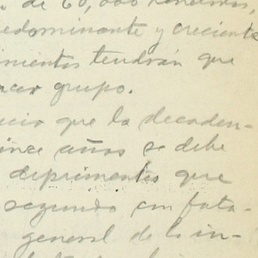 de 60,000
edominante y creciente
mientos tendrán que
acer grupo.
cio que la decaden-
ince años se debe
deprimentes que
segundo con fata-
general de la in-